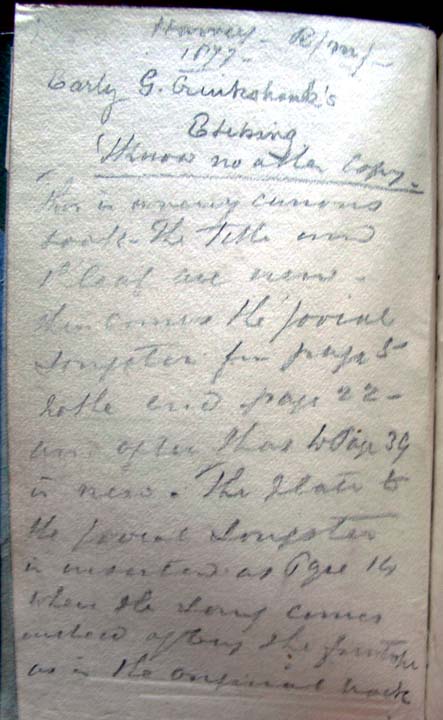 Harvey - R/m/-
1877-
Early G. Cruikshank's
Etching
I know no other Copy.
This is a very curious
book. The title and
1st leaf are new.
then comes the Jovial
Songster from page 5
to the end page 22-
and after that to Page 39
is new. The Plate to
the Jovial Songster
is inserted as Page 14
when the song comes
instead of being the
as in the original book